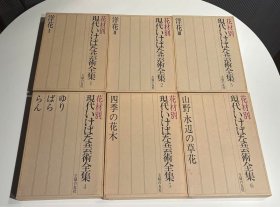 洋花Ⅰ
花材別
現代いけばな芸術全集
1
洋花Ⅱ
花材別
現代いけばな芸術全集
2
洋花Ⅲ
花材別
現代いけばな芸術全集
3
ゆり
ばら
らん
花材別
現代いけばな芸術全集
4
四季の花木
花材別
現代いけばな芸術全集
5
山野・水辺の草花
花材別
現代いけばな芸術全集
6